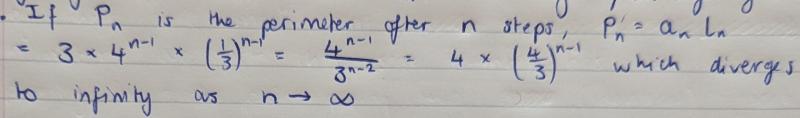 . If Pₙ is the perimeter after n steps, Pₙ = aₙ lₙ
= 3 × 4ⁿ⁻¹ × (1/3)ⁿ⁻¹ = 4ⁿ⁻¹/3ⁿ⁻² = 4 × (4/3)ⁿ⁻¹ which diverges
to infinity as n → ∞